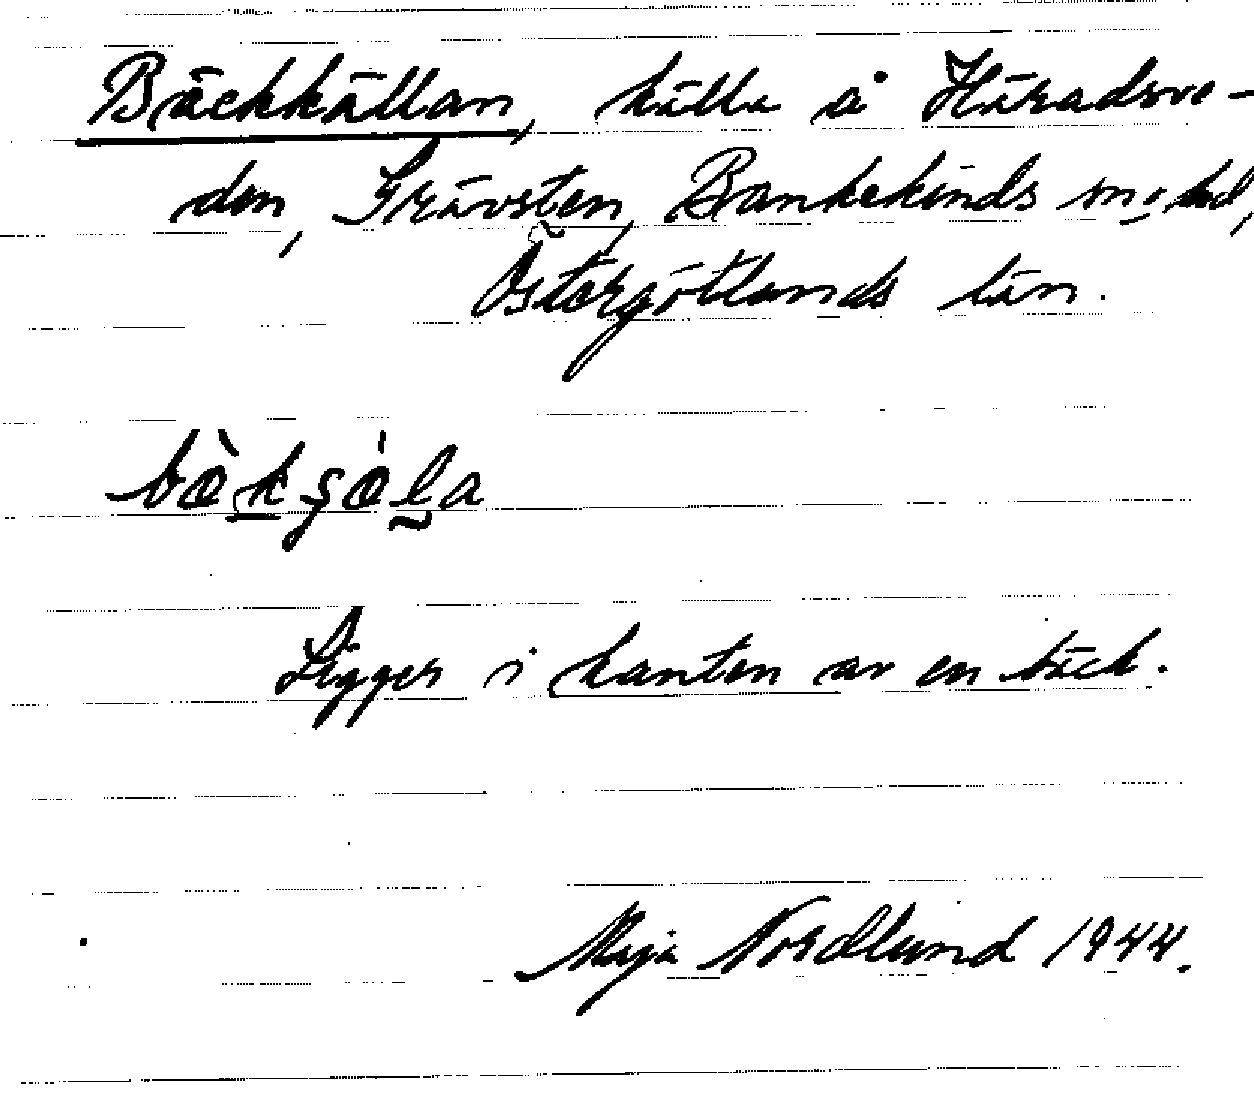 Bäckkällan, källa å Häradsve-
den, Grävsten, Bankekinds sn o. hd,
Östergötlands län.
Ligger i kanten av en bäck.
Maja Nordlund 1944.